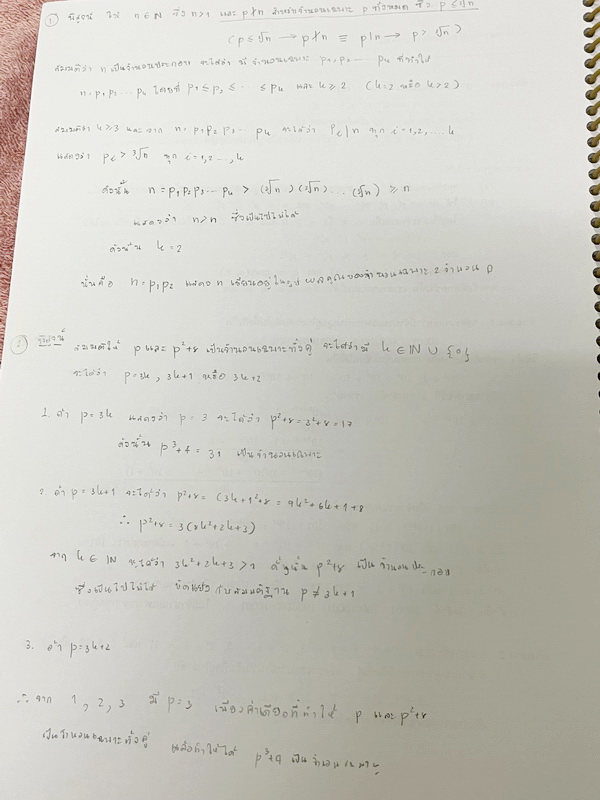 ① พิสูจน์ ให้ n ∈ N ซึ่ง n>1 และ p∤n สำหรับจำนวนเฉพาะ p ทั้งหมด ซึ่ง p ≤ ∛n
(p ≤ ∛n → p∤n ≡ p|n → p > ∛n)
สมมติว่า n เป็นจำนวนประกอบ จะได้ว่า มี จำนวนเฉพาะ p₁, p₂ ... pₖ ที่ทำให้
n = p₁ p₂ ... pₖ โดยที่ p₁ ≤ p₂ ≤ ... ≤ pₖ และ k ≥ 2 (k=2 หรือ k>2)
สมมติว่า k ≥ 3 และ จาก n = p₁ p₂ p₃ ... pₖ จะได้ว่า pᵢ|n ทุก i = 1,2,... k
แสดงว่า pᵢ > ∛n ทุก i = 1,2 ..., k
ดังนั้น n = p₁ p₂ p₃ ... pₖ > (∛n)(∛n) ... (∛n) ≥ n
แสดงว่า n>n ซึ่งเป็นไปไม่ได้
ดังนั้น k = 2
นั่นคือ n = p₁p₂ แสดง n เขียนอยู่ในรูป ผลคูณของจำนวนเฉพาะ 2 จำนวน
② พิสูจน์ สมมติให้ p และ p²+8 เป็นจำนวนเฉพาะทั้งคู่ จะได้ว่ามี k ∈ IN ∪ {0}
จะได้ว่า p = 3k, 3k+1 หรือ 3k+2
1. ถ้า p = 3k แสดงว่า p = 3 จะได้ว่า p²+8 = 3²+8 = 17
ดังนั้น p³+4 = 31 เป็นจำนวนเฉพาะ
2. ถ้า p = 3k+1 จะได้ว่า p²+8 = (3k+1²+8 = 9k²+6k+1+8
∴ p²+8 = 3(3k²+2k+3)
จาก k ∈ IN จะได้ว่า 3k²+2k+3 > 1 ดังนั้น p²+8 เป็นจำนวนประกอบ
ซึ่งเป็นไปไม่ได้ ขัดแย้งกับสมมติฐาน p ≠ 3k+1
3. ถ้า p = 3k+2
∴ จาก 1, 2, 3 มี p = 3 เพียงค่าเดียวที่ทำให้ p และ p²+8
เป็นจำนวนเฉพาะทั้งคู่ แล้วทำให้ได้ p³+4 เป็นจำนวนเฉพาะ